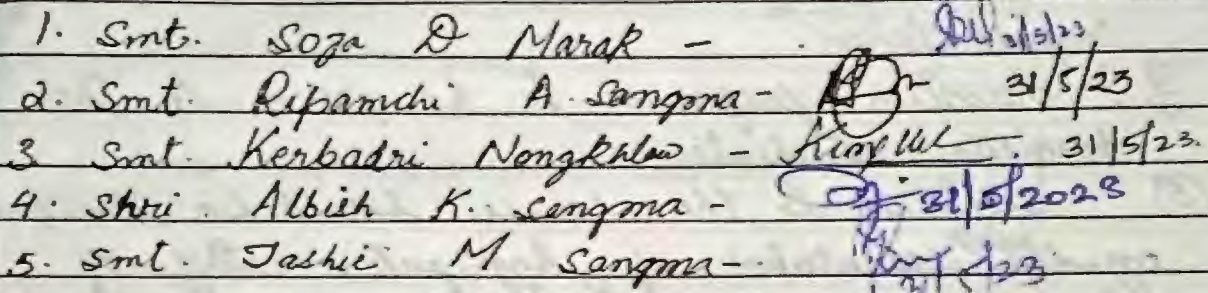 1. Smt. Soza D Marak - 31/5/23
2. Smt. Ripamchi A. Sangma - 31/5/23
3 Smt. Kerbadri Nongkhlaw - 31/5/23.
4. Shri. Albish K. Sangma - 31/5/2023
5. Smt. Tashie M Sangma - 31/5/23